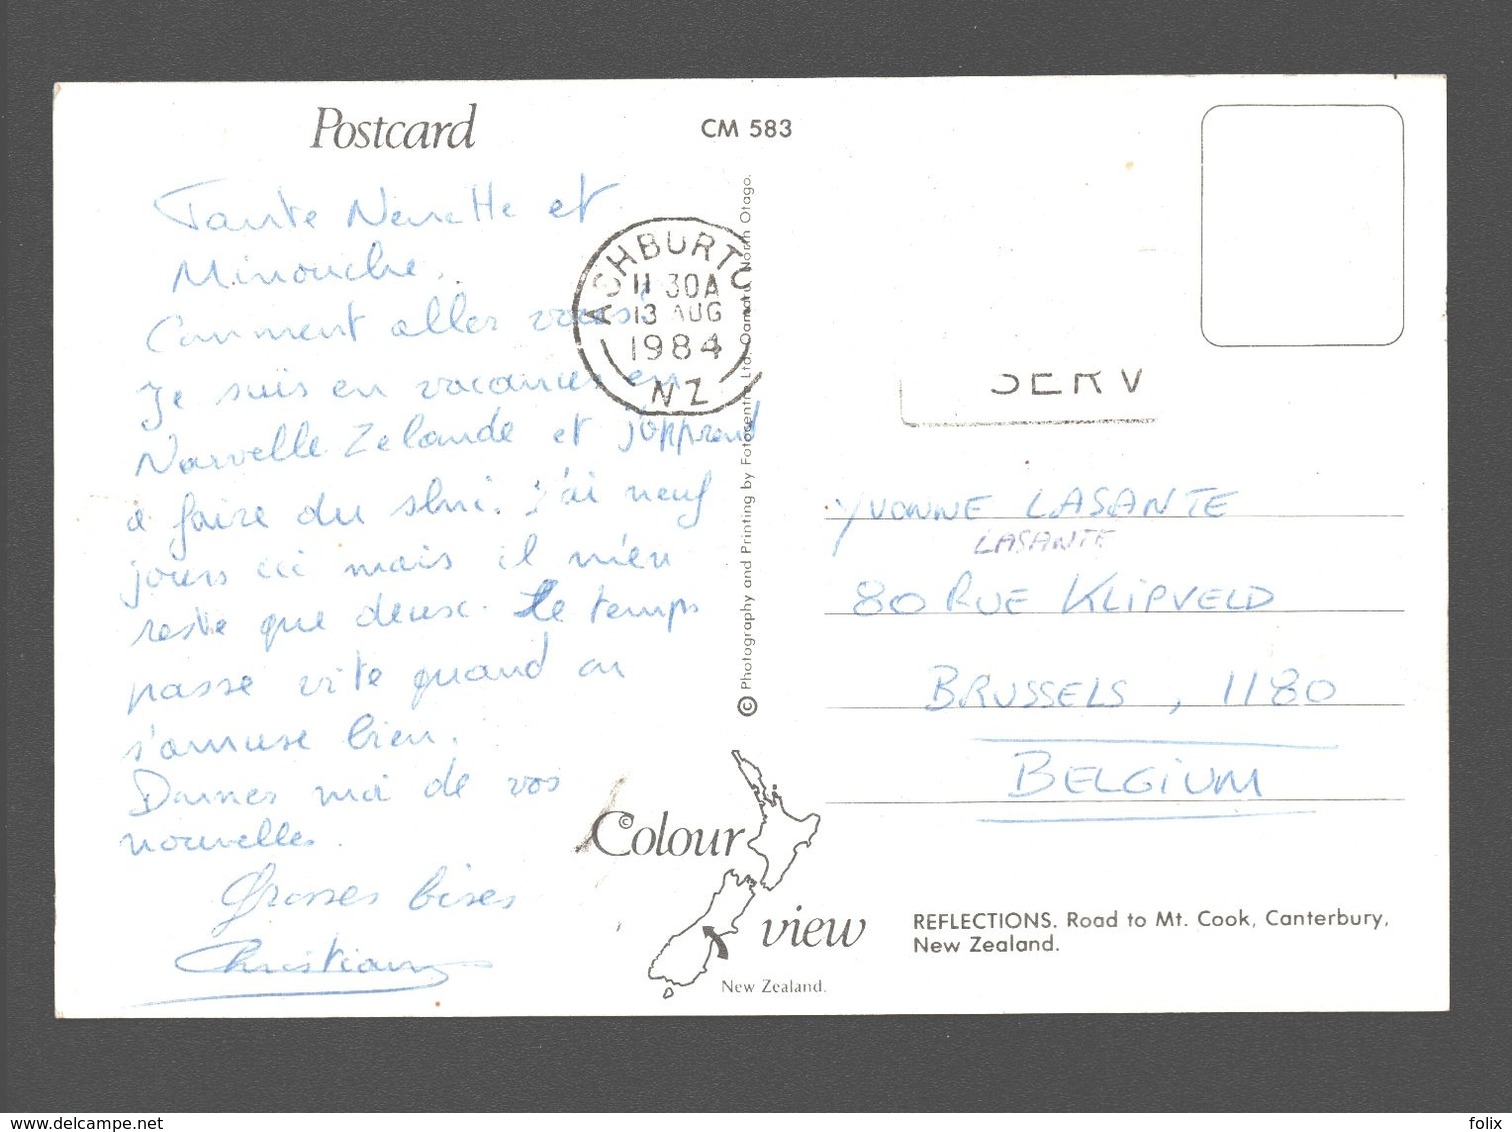 Postcard
CM 583
Tante Nenette et
Minouche.
Comment allez vous?
Je suis en vacances en
Nouvelle Zelande et j'apprend
à faire du ski. J'ai neuf
jours ici mais il m'en
reste que deux. Le temps
passe vite quand on
s'amuse bien.
Donnes moi de vos
nouvelles.
Grosses bises
Christian
ASHBURTO
11 30A
13 AUG
1984
NZ
SERV
© Photography and Printing by Fotocentre Ltd, Oamaru, North Otago.
YVONNE LASANTE
LASANTE
80 RUE KLIPVELD
BRUSSELS, 1180
BELGIUM
©Colour
view
New Zealand.
REFLECTIONS. Road to Mt. Cook, Canterbury,
New Zealand.
delcampe.net
folix